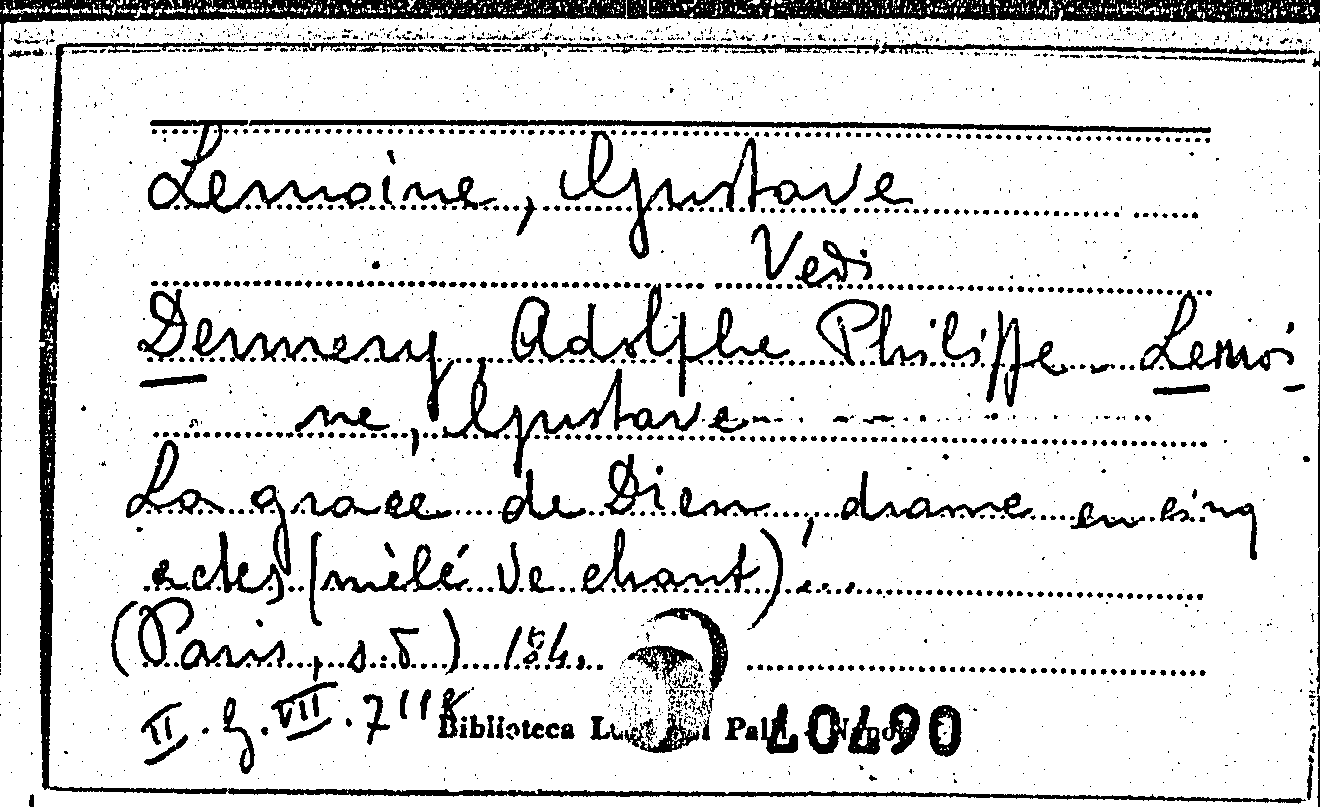 Lemoine, Gustave
Vedi
Dennery, Adolphe Philippe - Lemoi-
ne, Gustave
La grace de Dieu, drame en cinq
actes (mèlé de chant)...
(Paris, s.d.) 184.
II. G. VII. 7
Biblioteca